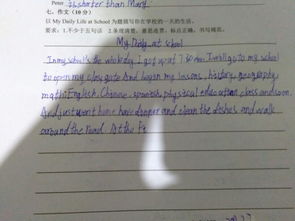 Peter is shorter than Mary.
七、作文（10分）
以 My Daily Life at School 为题描写你在学校的一天的生活。
要求：1.不少于五句话 2.条理清楚，意思连贯，标点正确，书写规范。
My Daily at school
In my school's the whole day. I got up at 7 I will go to my school
to open my class gate And began my lessons, history, geography
math English, Chinese, spanish, physical education class and soon.
And just went home have dinner and clean the dishes and walk
around the road. At the